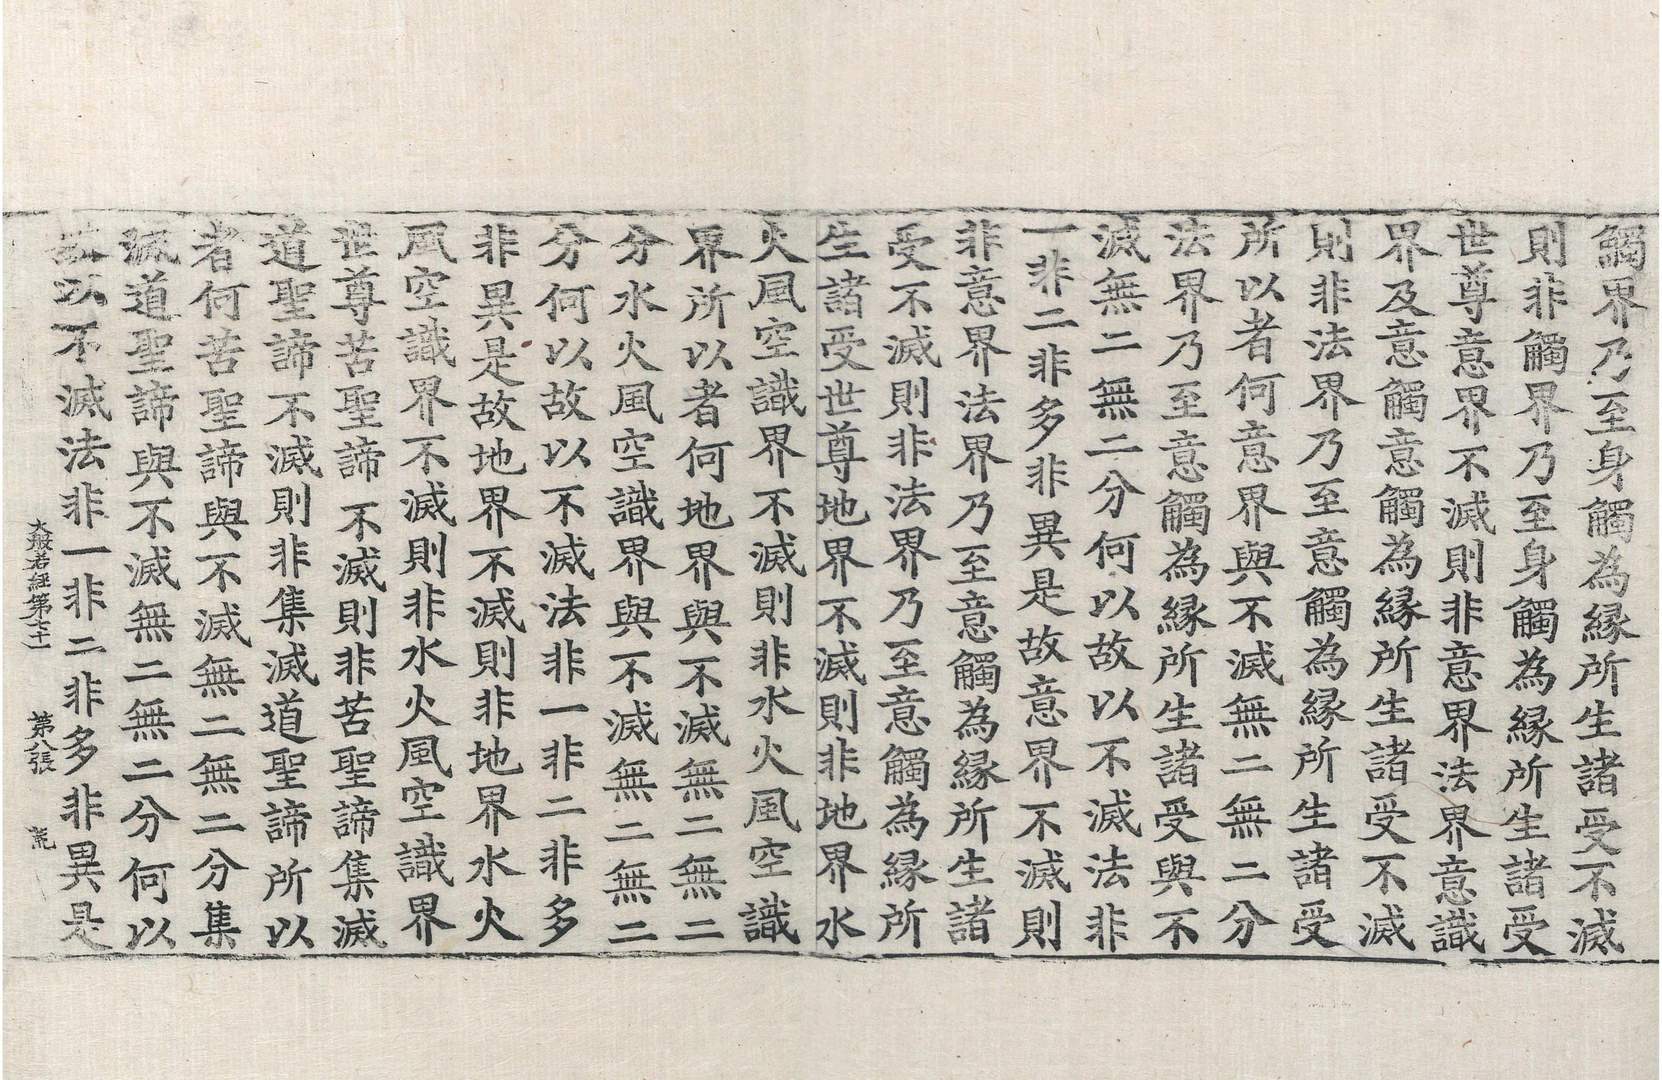 觸界乃至身觸為縁所生諸受不滅
則非觸界乃至身觸為縁所生諸受
世尊意界不滅則非意界法界意識
界及意觸意觸為縁所生諸受不滅
則非法界乃至意觸為縁所生諸受
所以者何意界與不滅無二無二分
法界乃至意觸為縁所生諸受與不
滅無二無二分何以故以不滅法非
一非二非多非異是故意界不滅則
非意界法界乃至意觸為縁所生諸
受不滅則非法界乃至意觸為縁所
生諸受世尊地界不滅則非地界水
火風空識界不滅則非水火風空識
界所以者何地界與不滅無二無二
分水火風空識界與不滅無二無二
分何以故以不滅法非一非二非多
非異是故地界不滅則非地界水火
風空識界不滅則非水火風空識界
世尊苦聖諦不滅則非苦聖諦集滅
道聖諦不滅則非集滅道聖諦所以
者何苦聖諦與不滅無二無二分集
滅道聖諦與不滅無二無二分何以
故以不滅法非一非二非多非異是
大般若経第七十一 第八張 荒